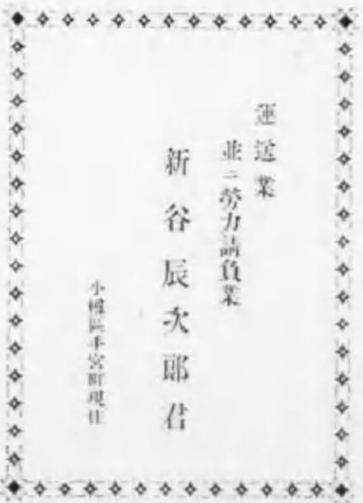 運送業
並ニ勞力請負業
新谷辰次郎君
小樽區手宮町現住